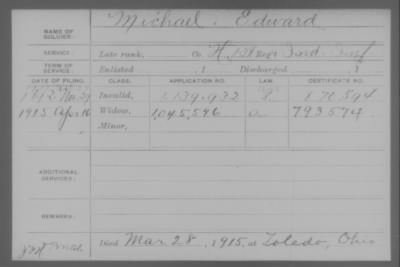 NAME OF SOLDIER: Michael, Edward
SERVICE: Late rank, Co. H, Reg't Ind. Inf.
TERM OF SERVICE: Enlisted , 1 Discharged , 1
DATE OF FILING. CLASS. APPLICATION NO. LAW. CERTIFICATE NO.
Invalid, 1139,932
1915 Apr 16 Widow, 1,045,596 793574
Minor,
ADDITIONAL SERVICES:
REMARKS:
Died Mar 28, 1915, at Toledo, Ohio